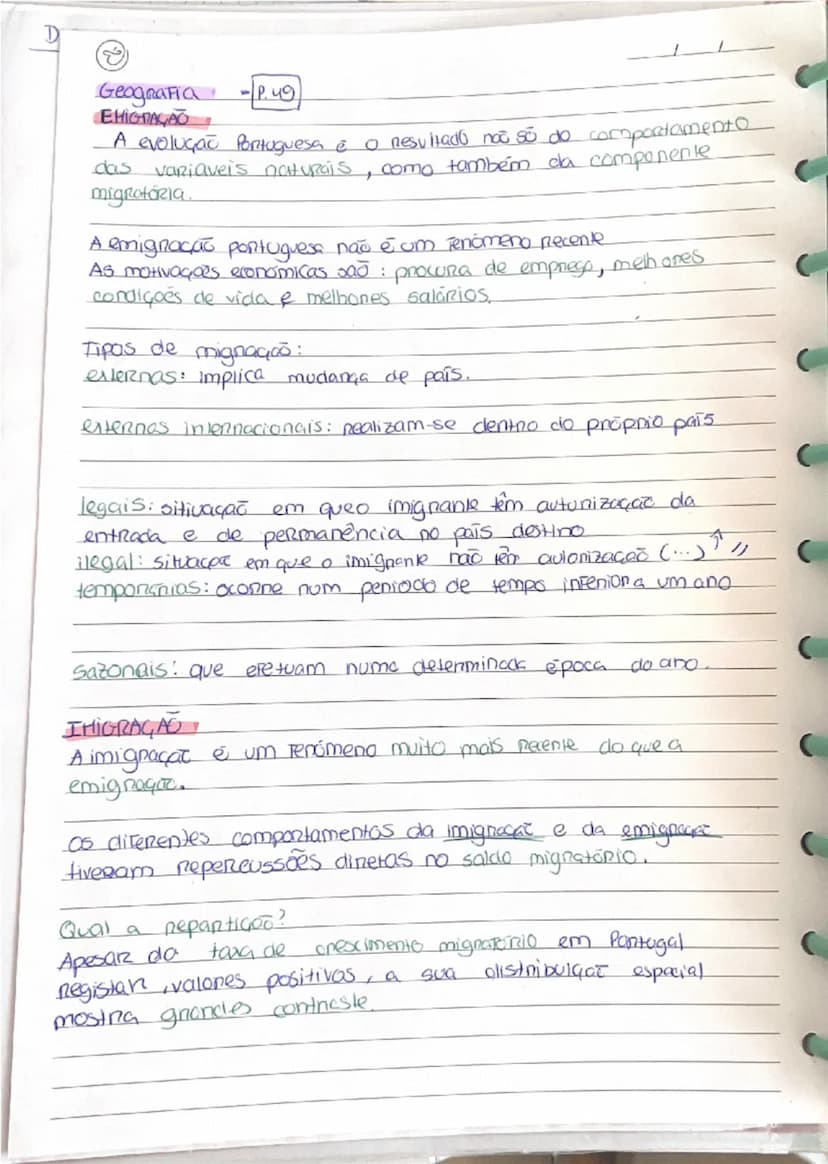 D
Geografia - P.49
EMIGRAÇÃO
A evolução Portuguesa é o resultado não só do comportamento
das variaveis naturais, como também da componente
migratória.
A emigração portuguesa não é um fenómeno recente
As motivações económicas são: procura de emprego, melhores
condições de vida e melhores salários.
Tipos de migração:
externas: implica mudança de país.
externas internacionais: realizam-se dentro do próprio país
legais: sitivação em que o imigrante têm autorização da
entrada e de permanência no país destino
ilegal: situação em que o imigrante não têm autorização (...) ↑ //
temporárias: ocorre num periodo de tempo inferior a um ano
sazonais: que efetuam numa determinada época do ano.
IMIGRAÇÃO
A imigração é um fenómeno muito mais recente do que a
emigração.
os diferentes comportamentos da imigração e da emigração
tiveram repercussões diretas no saldo migratório.
Qual a repartição?
Apesar da taxa de crescimento migratório em Portugal
registar, valores positivos, a sua distribuição espacial
mostra grandes contraste.